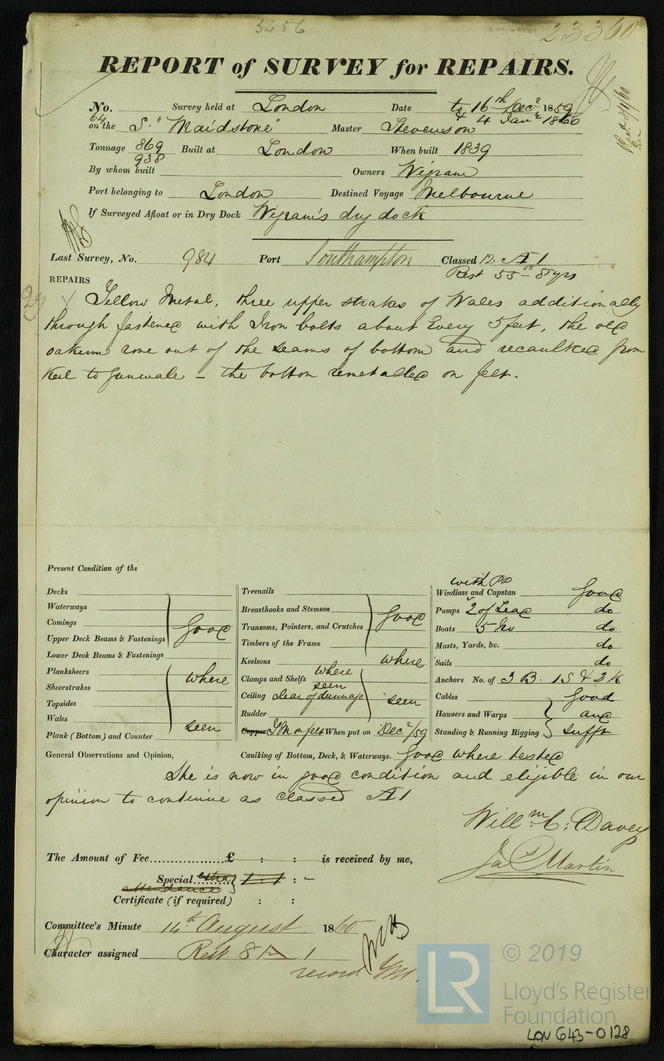 5456
23360
REPORT of SURVEY for REPAIRS.
No. 64 Survey held at London Date to 16th Decr 1859
& 4 Jany 1860
on the S. "Maidstone" Master Stevenson
Tonnage 869 938 Built at London When built 1839
By whom built Owners Wigram
Port belonging to London Destined Voyage Melbourne
If Surveyed Afloat or in Dry Dock Wigram's dry dock
Last Survey, No. 984 Port Southampton Classed 12 A 1
Rest 55 - 8 yrs
REPAIRS
Yellow Metal, three upper strakes of Wales additionally
through fastened with Iron bolts about Every 5 feet, the old
oakum rove out of the seams of bottom and recaulked from
Keel to Gunwale – the bottom remetalled on felt.
Present Condition of the
Decks
Waterways
Comings
Upper Deck Beams & Fastenings
Lower Deck Beams & Fastenings
good
Planksheers
Sheerstrakes
Topsides
Wales
Plank (Bottom) and Counter
where
seen
Treenails
Breasthooks and Stemson
Transoms, Pointers, and Crutches
Timbers of the Frame
good
Keelsons where
Clamps and Shelfs where seen
Ceiling clear of dunnage
Rudder
seen
Copper YM on felt When put on Decr/59
with PP
Windlass and Capstan good
Pumps 2 of Lead do
Boats 5 No do
Masts, Yards, &c. do
Sails do
Anchors No. of 3 B. 1 S & 2 K
Cables good
Hawsers and Warps and
Standing & Running Rigging sufft
General Observations and Opinion, Caulking of Bottom, Deck, & Waterways. good where tested
She is now in good condition and eligible in our
opinion to continue as classed A1
Willm. C: Davey
Jas. P Martin
The Amount of Fee £ : : is received by me,
Special extra attendance 1 : 1 : -
Certificate (if required) : :
Committee's Minute 14th August 1860
Character assigned Rest 8 A 1
record YM.
LR
© 2019
Lloyd's Register
Foundation
LON 643-0128